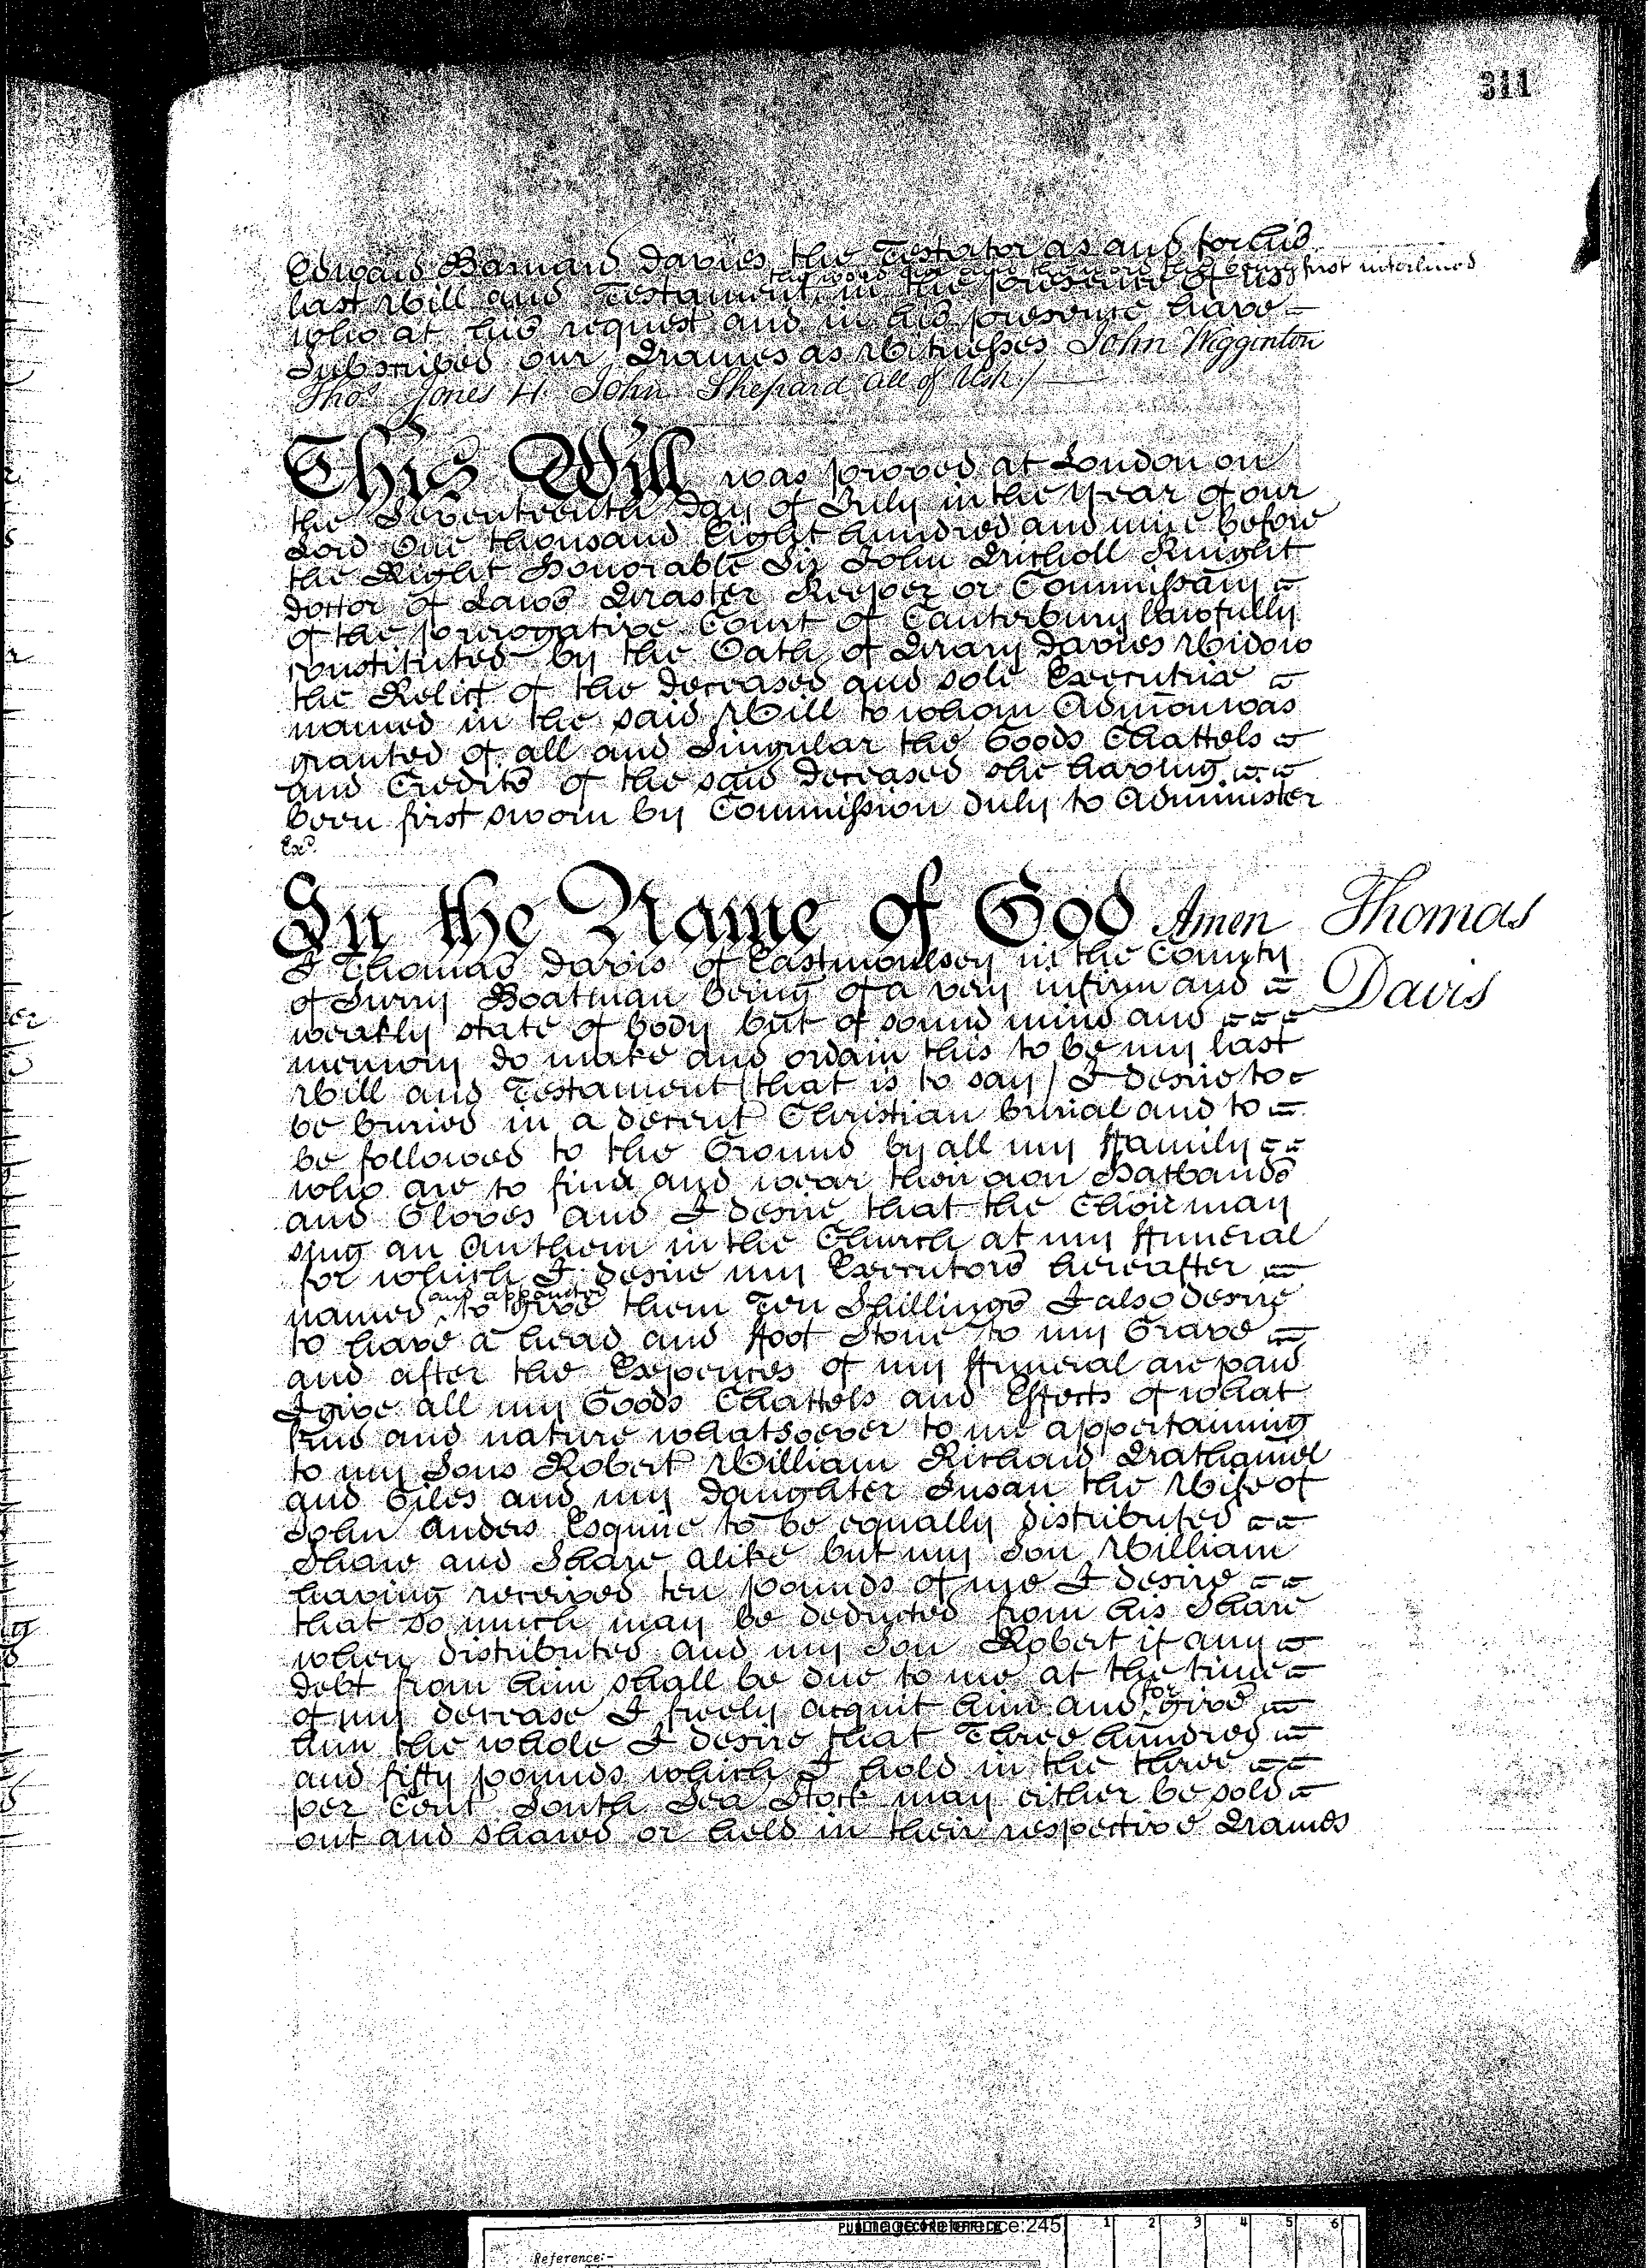 311
Edward Barnard Davies the Testator as and for his
the word being first interlined
last Will and Testament in the presence of us
who at his request and in his presence have
Subscribed our Names as Witnesses John Wigginton
Thos. Jones H. John Shepard all of Usk /
This Will was proved at London on
the Seventeenth day of July in the year of our
Lord One thousand Eight hundred and nine before
the Right Honorable Sir John Nicholl Knight
Doctor of Laws Master Keeper or Commissary
of the prerogative Court of Canterbury lawfully
constituted by the Oath of Mary Davies Widow
the Relict of the deceased and sole Executrix
named in the said Will to whom Admon was
granted of all and Singular the Goods Chattels
and Credits of the said deceased she having
been first sworn by Commission duly to Administer
Exd.
In the Name of God Amen
Thomas
Davis
I Thomas Davis of Eastmoulsey in the County
of Surry Boatman being of a very infirm and
weakly state of body but of sound mind and
memory do make and ordain this to be my last
Will and Testament (that is to say) I desire to
be buried in a decent Christian burial and to
be followed to the Ground by all my ffamily
who are to find and wear their own Hatbands
and Gloves and I desire that the Choir may
sing an Anthem in the Church at my ffuneral
for which I desire my Executors hereafter
and appointed
named to give them Ten Shillings I also desire
to have a head and ffoot Stone to my Grave
and after the Expences of my ffuneral are paid
I give all my Goods Chattels and Effects of what
kind and nature whatsoever to me appertaining
to my Sons Robert William Richard Nathaniel
and Giles and my Daughter Susan the Wife of
John Anders Esquire to be equally distributed
Share and Share alike but my Son William
having received ten pounds of me I desire
that so much may be deducted from his Share
when distributed and my Son Robert if any
debt from him shall be due to me at the time
of my decease I freely acquit him and forgive
him the whole I desire that Three hundred
and fifty pounds which I hold in the three
per Cent South Sea Stock may either be sold
out and shared or held in their respective Names
Reference:-